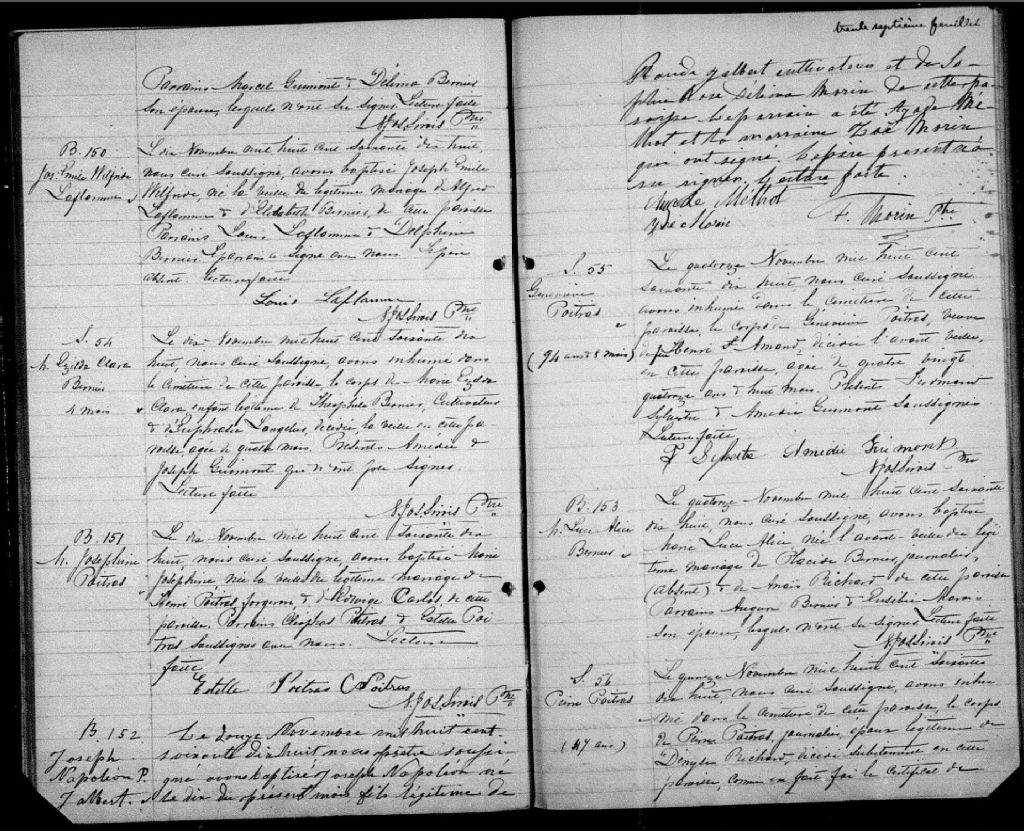 Parrains Marcel Guimont & Délima Bernier
son épouse, lesquels n'ont su signer. Lecture faite
N. Jos Sirois Ptre
B. 150
Jos. Emile Wilfride
Laflamme
Le dix Novembre mil huit cent soixante dix huit,
nous curé soussigné, avons baptisé Joseph Emile
Wilfride, né la veille du légitime mariage de Alfred
Laflamme & d'Elisabeth Bernier, de cette paroisse
Parrains Louis Laflamme & Delphine
Bernier. Le parrain a signé avec nous. Le père
absent. Lecture faite
Louis Laflamme
N. Jos Sirois Ptre
S. 54
M. Ezilda Clara
Bernier
4 mois
Le dix Novembre mil huit cent soixante dix
huit, nous curé soussigné, avons inhumé dans
le cimetière de cette paroisse le corps de Marie Ezilda
Clara enfant légitime de Théophile Bernier, Cultivateur
& d'Euphrasie Langelier, décédée la veille en cette pa
roisse, agée de quatre mois. Présents Amédée &
Joseph Guimont qui n'ont pu signer.
Lecture faite
N. Jos Sirois Ptre
B. 151
M. Josephine
Poitras
Le dix Novembre mil huit cent soixante dix
huit, nous curé soussigné avons baptisé Marie
Josephine née la veille du légitime mariage de
Henri Poitras forgeron & d'Edwige Carlos de cette
paroisse. Parrains Cléophas Poitras & Estelle Poi
tras soussignés avec nous. Lecture
faite
Estelle Poitras C Poitras
N. Jos Sirois Ptre
B. 152
Joseph
Napoléon P.
Jalbert.
Le douze Novembre mil huit cent
soixante dix huit nous prêtre soussi
gné avons baptisé Joseph Napoléon né
le dix du présent mois fils légitime de
trente septième feuillet
Jalbert cultivateur et de So
phie Rose Délima Morin de cette pa
roisse. Le parrain a été Mé
thot et la marraine Zoé Morin
qui ont signé. Le père présent n'a
su signer. Lecture faite.
Méthot
Morin
F. Morin Ptre
S. 55
Geneviève
Poitras
(94 ans 8 mois)
Le quatorze Novembre mil huit cent
soixante dix huit nous curé soussigné
avons inhumé dans le cimetière de cette
paroisse, le corps de Geneviève Poitras, veuve
de feu Henri St Amand, décédée l'avant veille,
en cette paroisse, agée de quatre vingt
quatorze ans & huit mois. Présents Fermont
Sylvestre & Amédée Guimont soussignés
Lecture faite
F Sylvestre Amédée Guimont
N. Jos Sirois Ptre
B. 153
M. Luce Alice
Bernier
Le quatorze Novembre mil huit cent soixante
dix huit, nous curé soussigné, avons baptisé
Marie Luce Alice née l'avant-veille du légi
time mariage de Placide Bernier, journalier,
(absent) & de Anaïs Richard de cette paroisse
Parrains Bernier & Eusébie Morin
son épouse, lesquels n'ont su signer. Lecture faite
N. Jos Sirois Ptre
S. 56
Pierre Poitras
(47 ans)
Le quinze Novembre mil huit cent soixante
dix huit, nous curé soussigné, avons inhu
mé dans le cimetière de cette paroisse, le corps
de Pierre Poitras, journalier, époux légitime de
Richard, décédé subitement en cette
paroisse, comme en fait foi le certificat de